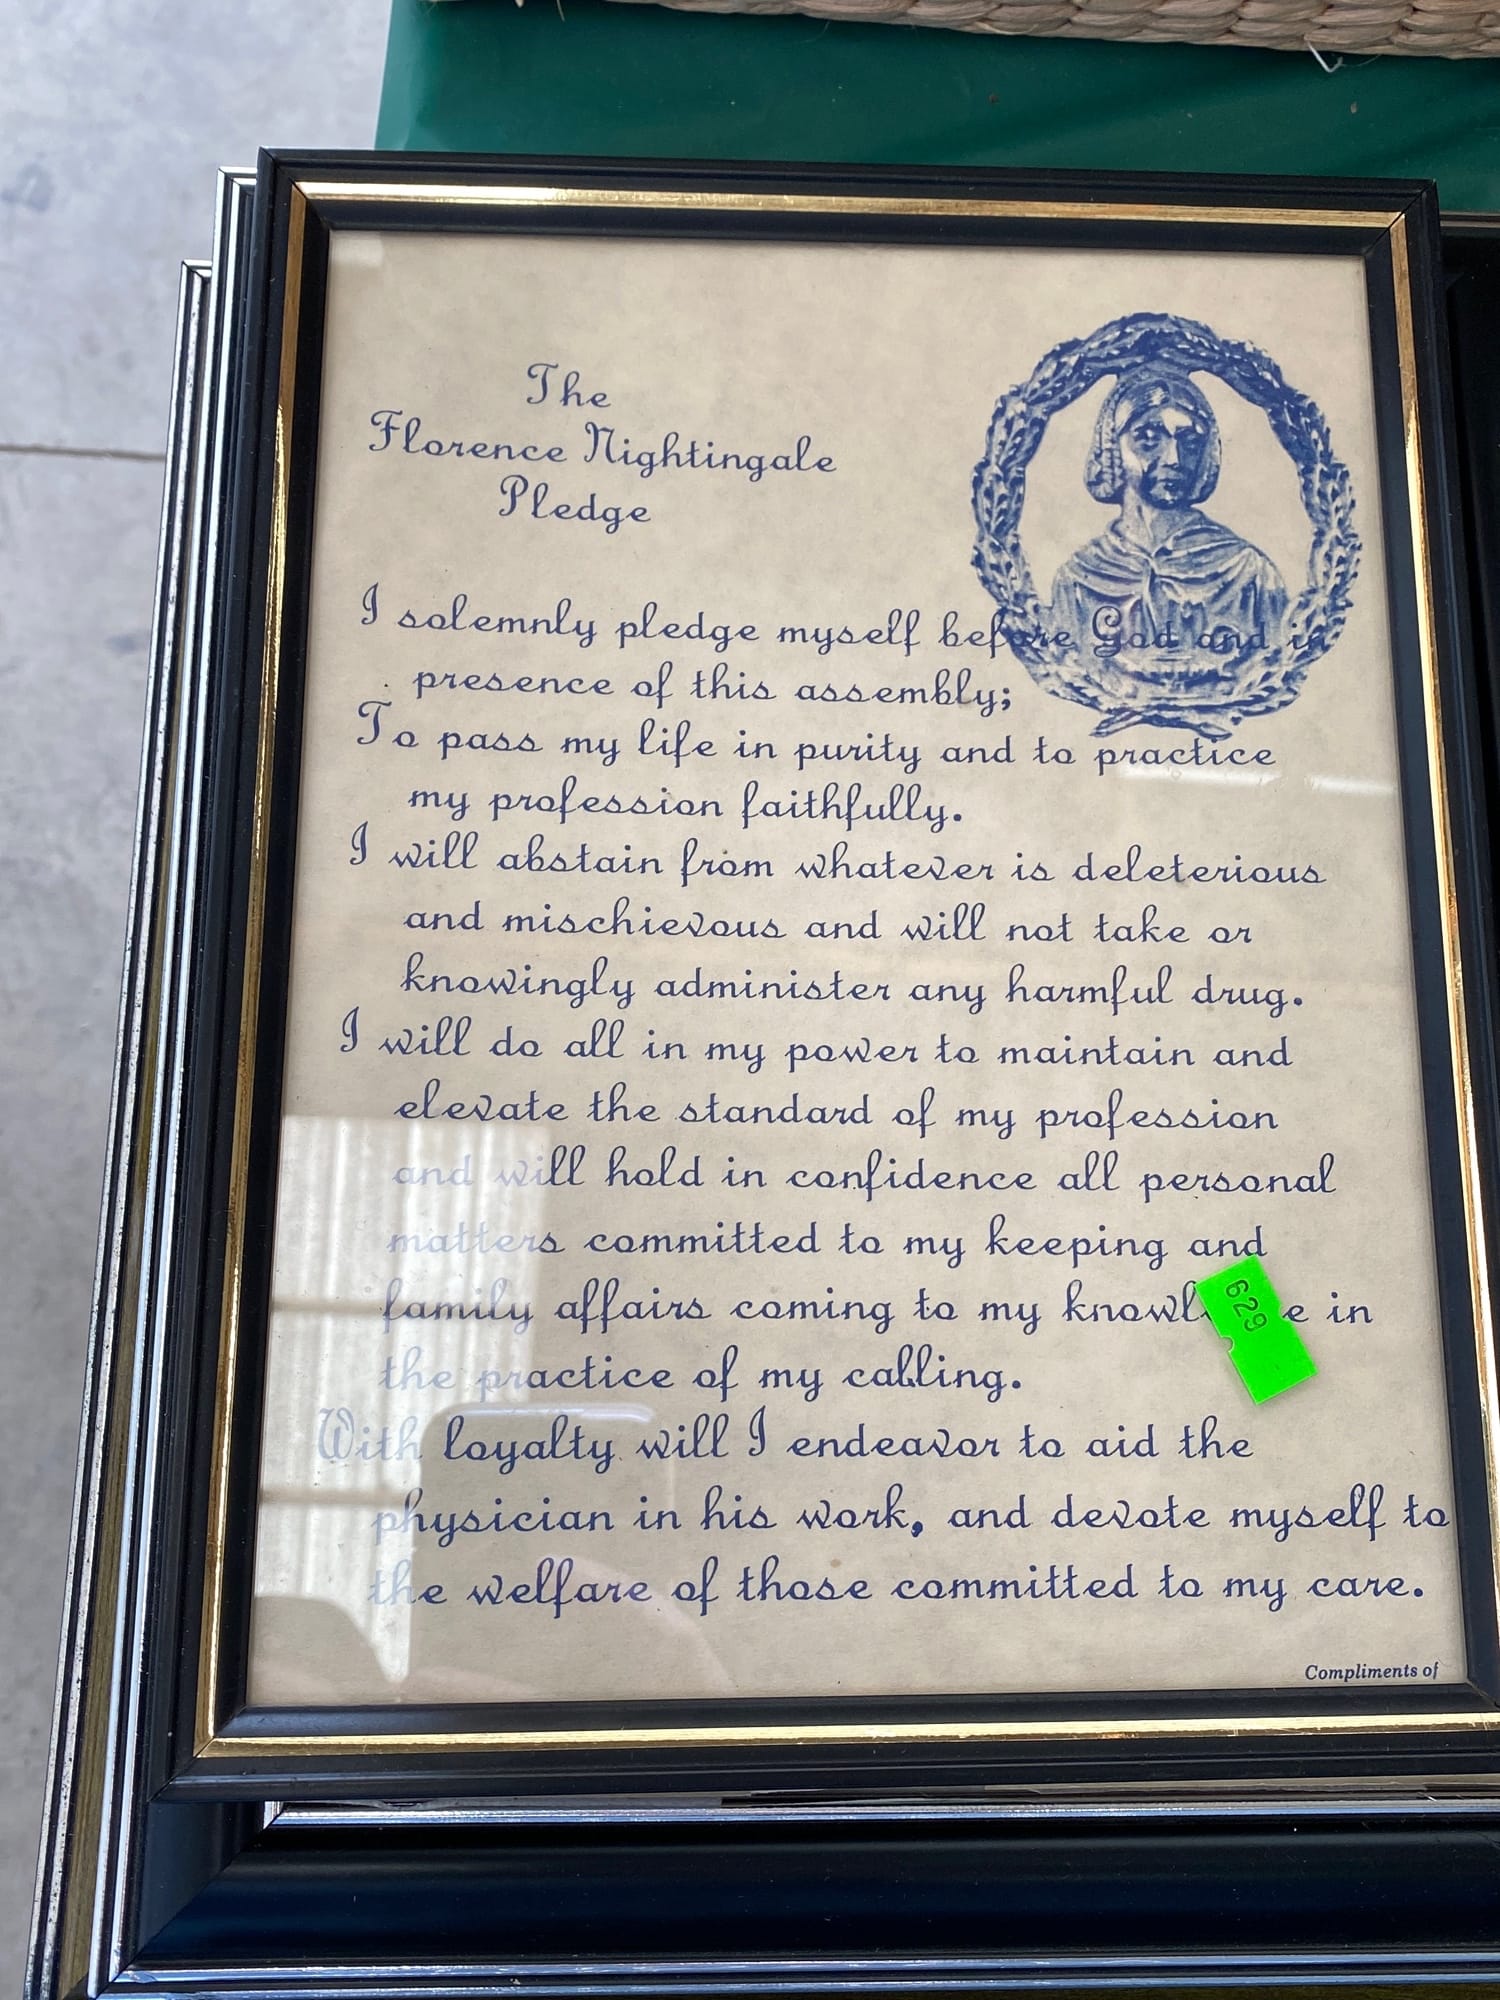 The
Florence Nightingale
Pledge
I solemnly pledge myself before God and in
presence of this assembly;
To pass my life in purity and to practice
my profession faithfully.
I will abstain from whatever is deleterious
and mischievous and will not take or
knowingly administer any harmful drug.
I will do all in my power to maintain and
elevate the standard of my profession
and will hold in confidence all personal
matters committed to my keeping and
family affairs coming to my knowl e in
629
the practice of my calling.
With loyalty will I endeavor to aid the
physician in his work, and devote myself to
the welfare of those committed to my care.
Compliments of